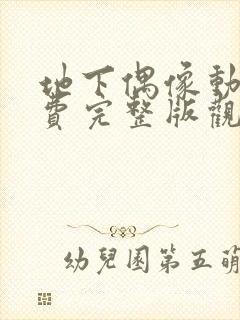 地下偶像動
費完整版觀
幼兒園第五萌